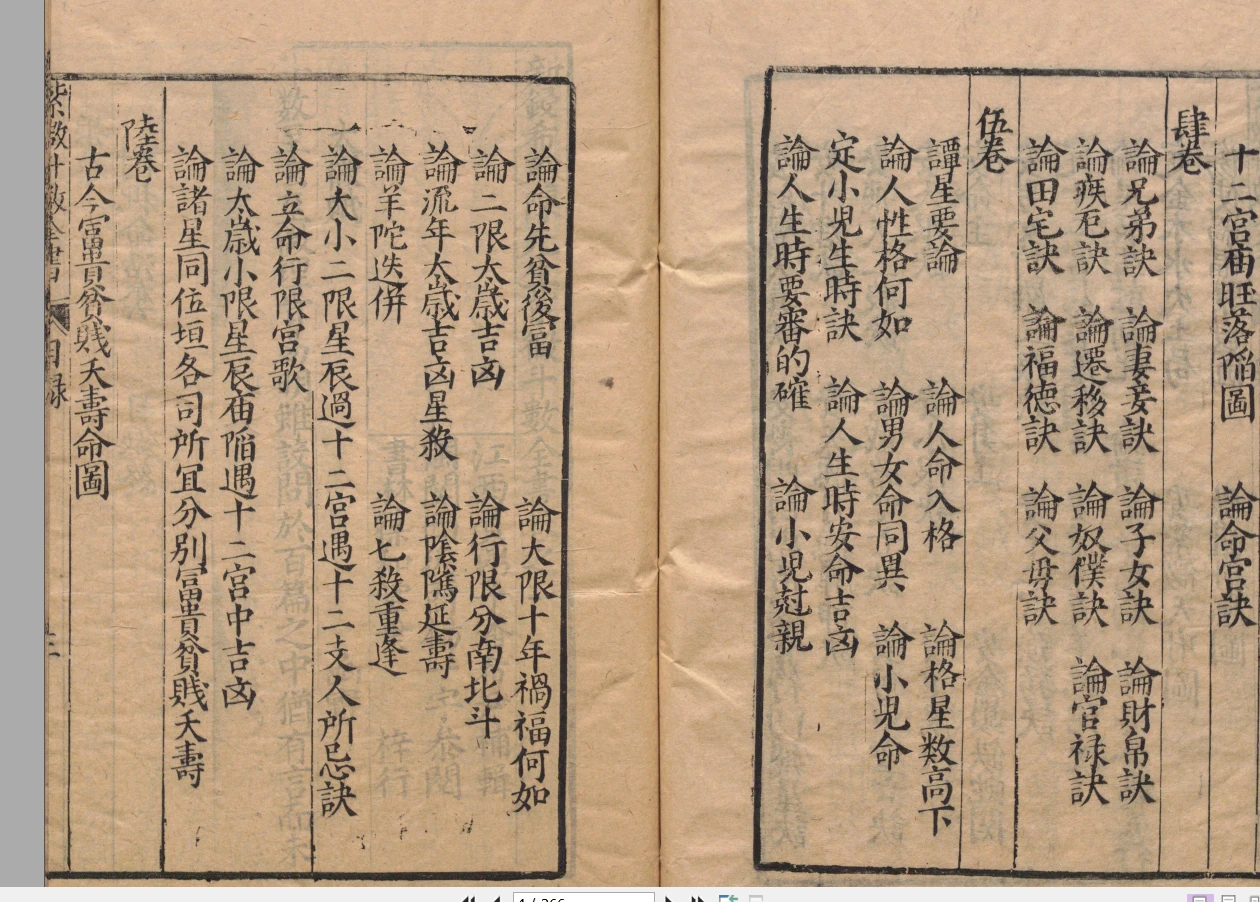 十二宮庙旺落陷圖 論命宮訣
肆卷
論兄弟訣 論妻妾訣 論子女訣 論財帛訣
論疾厄訣 論遷移訣 論奴僕訣 論官禄訣
論田宅訣 論福德訣 論父毋訣
伍卷
譚星要論 論人命入格 論格星数高下
論人性格何如 論男女命同異 論小児命
定小児生時訣 論人生時安命吉凶
論人生時要審的確 論小児尅親
論命先貧後冨 論大限十年禍福何如
論二限太歳吉凶 論行限分南北斗
論流年太歳吉凶星殺 論陰隲延壽
論羊陀迭併 論七殺重逢
論大小二限星辰過十二宮遇十二支人所忌訣
論立命行限宮歌
論太歳小限星辰庙陷遇十二宮中吉凶
論諸星同位垣各司所宜分別冨貴貧賤夭壽
陸卷
古今冨貴貧賤夭壽命圖
目録
4 / 266